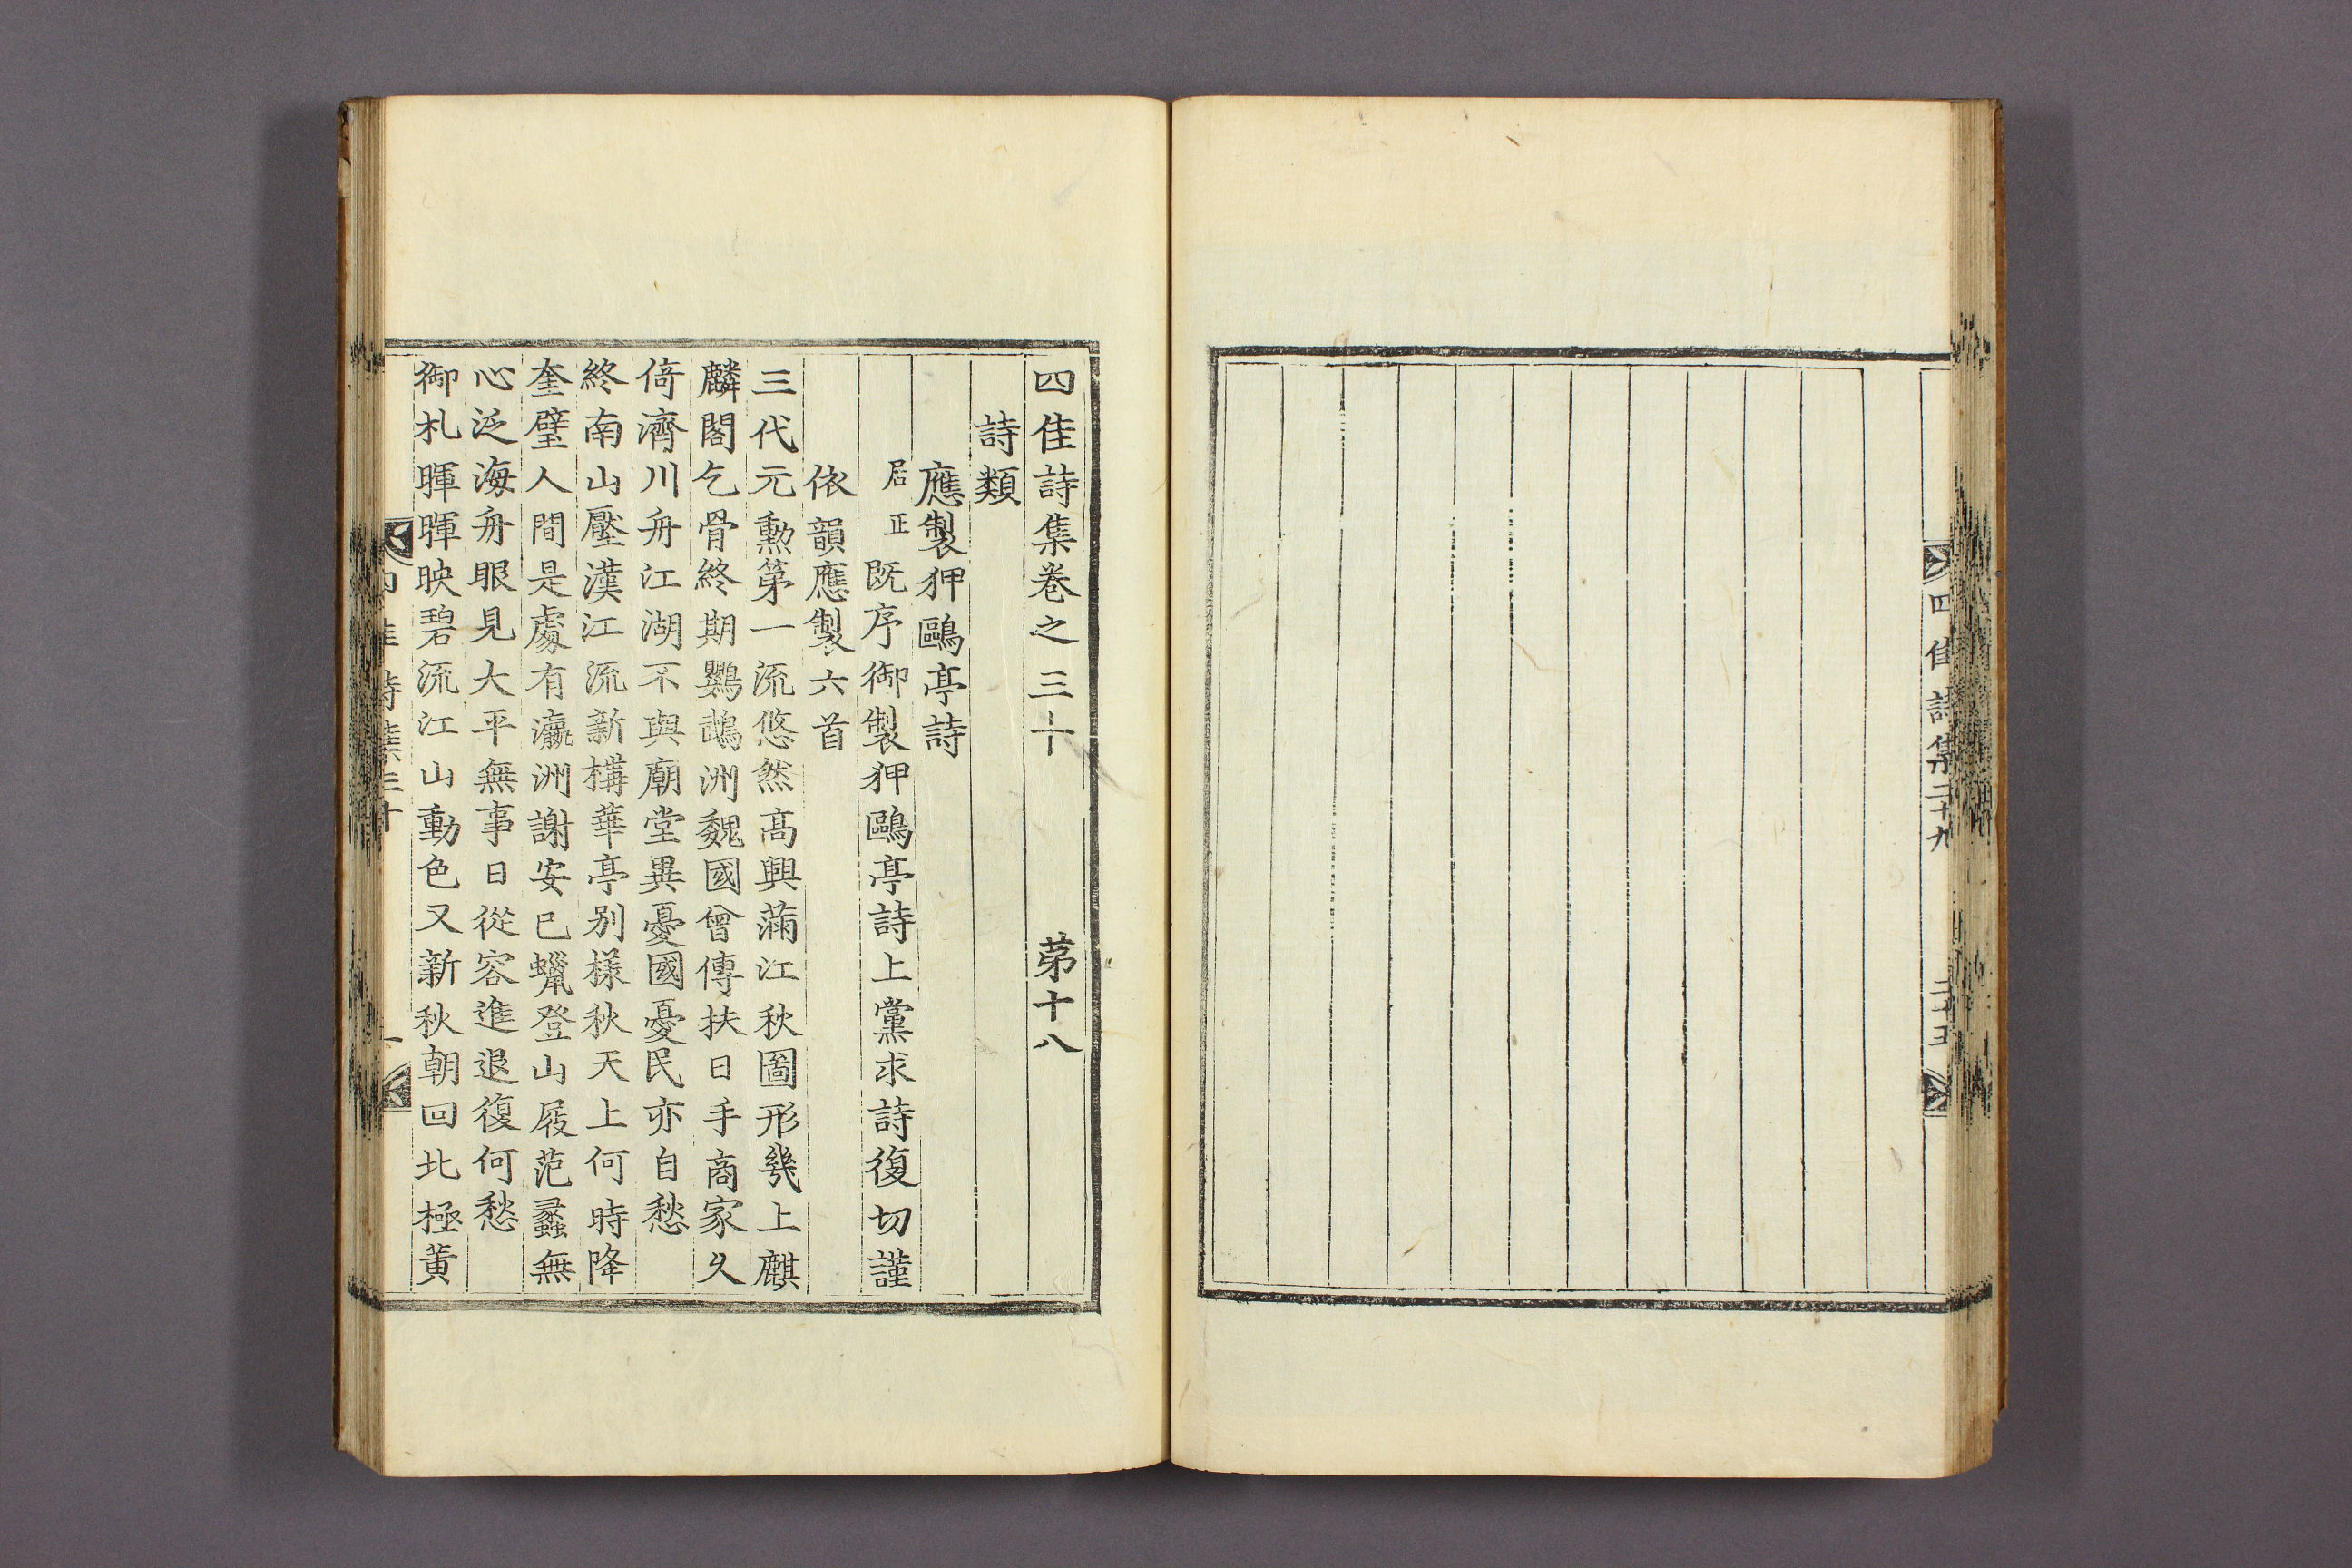 四佳詩集二十九
二十五
四佳詩集卷之三十 苐十八
詩類
應製狎鷗亭詩
居正既序御製狎鷗亭詩上黨求詩復切謹
依韻應製六首
三代元勳第一流悠然高興滿江秋圖形幾上麒
麟閣乞骨終期鸚鵡洲魏國曾傳扶日手商家久
倚濟川舟江湖不與廟堂異憂國憂民亦自愁
終南山壓漢江流新構華亭別樣秋天上何時降
奎璧人間是處有瀛洲謝安已蠟登山屐范蠡無
心泛海舟眼見大平無事日從容進退復何愁
御札暉暉映碧流江山動色又新秋朝回北極黃
四佳詩集三十
一